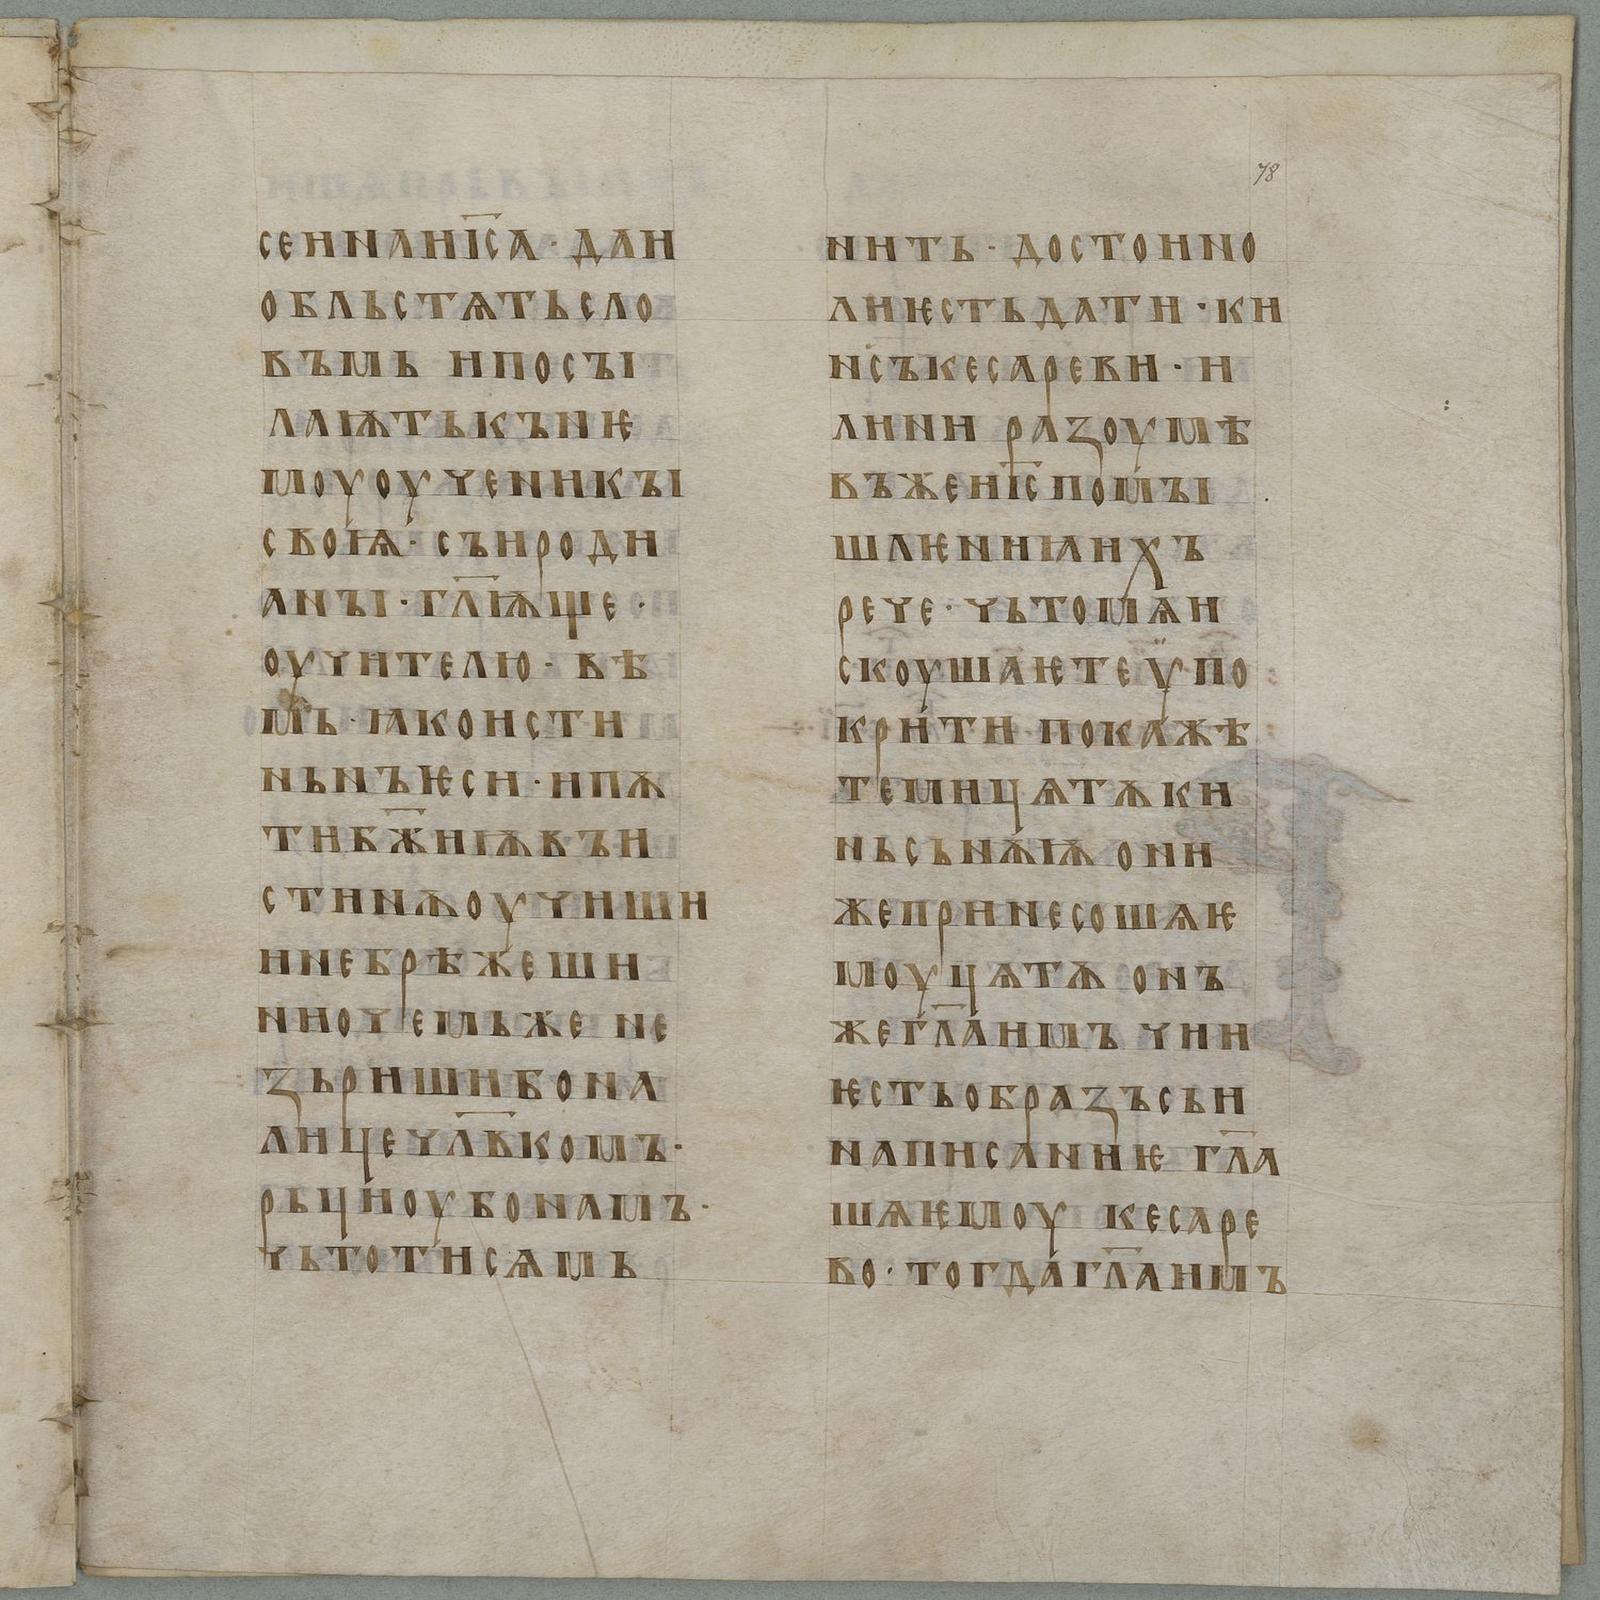 78
сеи на и҃са · да и
обльстѧть сло
въмь и посъі
лаѭть къ нѥ
моу оученикъі
своѩ · съ ироди
анъі · гл҃ѭще ·
оучителю · вѣ
мь · ꙗко исти
ньнъ ѥси · и пѫ
ти бж҃иꙗ въ и
стинѫ оучиши
и не брѣжеши
ни о чемьже не
зьриши бо на
лице чл҃вкомъ ·
рьци оубо намъ ·
чьто ти сѧ мь
нить · достоино
ли ѥсть дати · ки
нсъ кесареви · и
ли ни разоумѣ
въ же и҃с помъі
шлѥниꙗ ихъ
рече · чьто мѧ и
скоушаѥте ѵпо
крити · покажѣ
те ми цѧтѫ ки
ньсьнѫѭ они
же принесошѧ ѥ
моу цѧтѫ онъ
же гл҃а имъ чии
ѥсть образъ сь и
написаниѥ гл҃а
шѧ ѥмоу кесаре
во · тогда гл҃а имъ